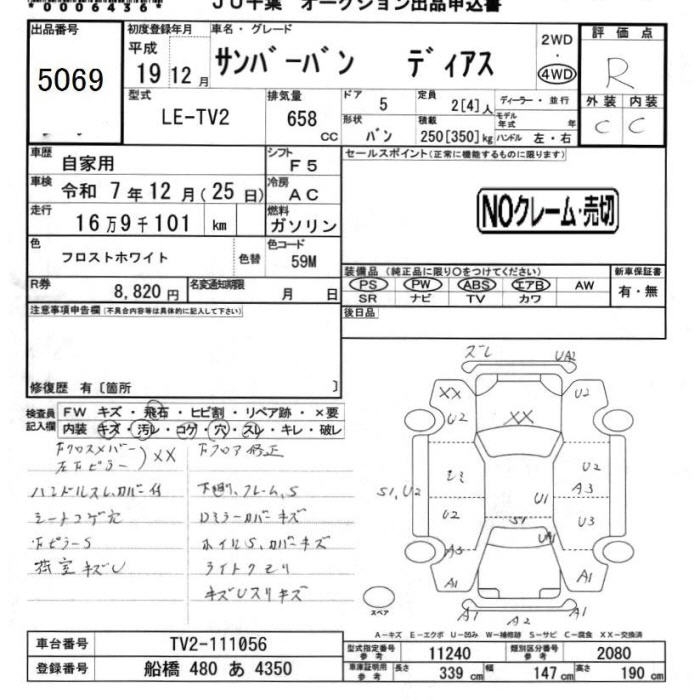 *0006436*
JU千葉 オークション出品申込書
出品番号
5069
初度登録年月
平成
19 12月
車名・グレード
サンバーバン ディアス
2WD
・
4WD
評価点
R
外装 内装
C C
型式
LE-TV2
排気量
658
cc
ドア
5
定員
2[4]人
ディーラー・並行
形状
バン
積載
250[350]kg
モデル年式 年
ハンドル 左・右
車歴
自家用
シフト
F5
セールスポイント(正常に機能するものに限ります)
車検
令和 7年12月(25日)
冷房
AC
NOクレーム・売切
走行
16万9千101 km
燃料
ガソリン
色
フロストホワイト
色替
色コード
59M
装備品(純正品に限り○をつけてください)
新車保証書
PS PW ABS エアB AW
有・無
SR ナビ TV カワ
R券
8,820円
名変通知期限
月 日
後日品
注意事項申告欄(不具合内容等は具体的に記入して下さい)
修復歴 有〔箇所 〕
検査員記入欄
FW キズ・飛石・ヒビ割・リペア跡・×要
内装 キズ・汚レ・コゲ・穴・スレ・キレ・破レ
右フロア修正
XX
ハンドルスレ、カバー付
下廻り、フレームS
シートコゲ穴
Dミラーカバーキズ
右ピラーS
ホイルS、カバーキズ
荷室キズU
ライトクモリ
キズUスリキズ
ズレ
UA2
XX
U2
U2
XX
U2
A3
S1,U2
U2
U1
U3
S1
A1
A1
A1
A2
A1
スペア
A-キズ E-エクボ U-凹み W-補修跡 S-サビ C-腐食 XX-交換済
車台番号
TV2-111056
型式指定番号 参考
11240
類別区分番号 参考
2080
登録番号
船橋 480 あ 4350
車庫証明用 参考
長さ 339 cm
幅 147 cm
高さ 190 cm